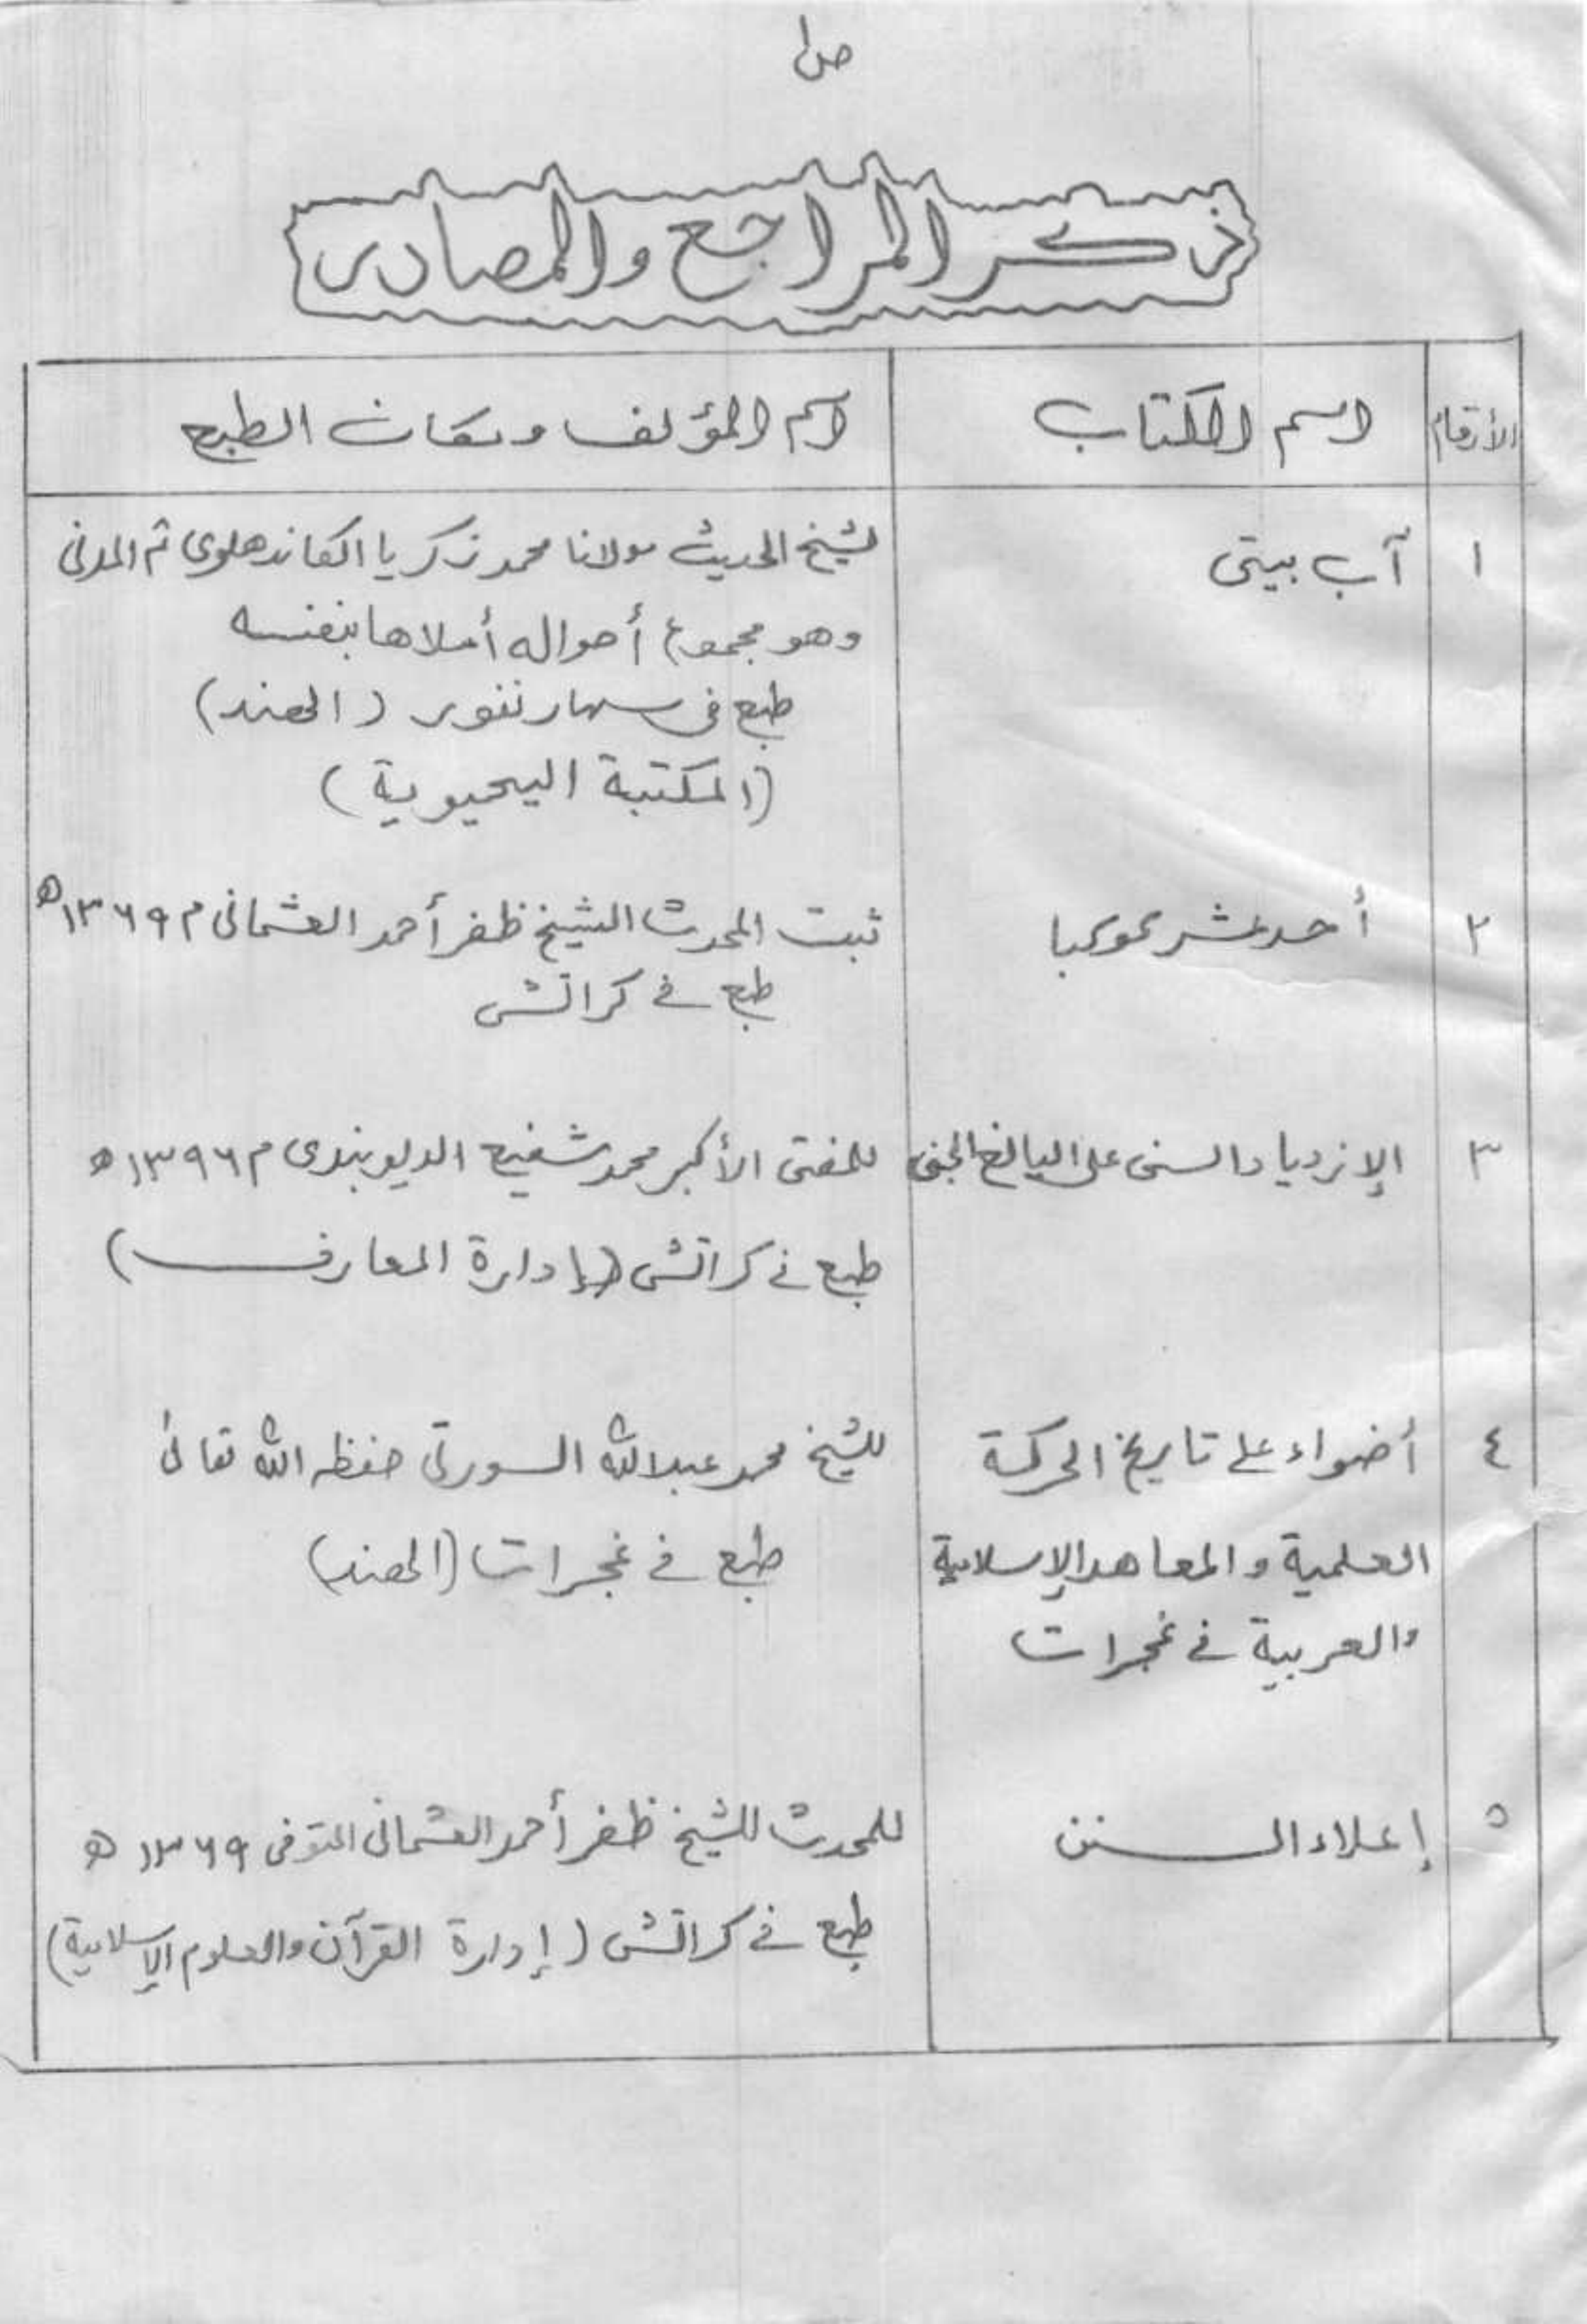 ص١
ذكر المراجع والمصادر
الأرقام اسم الكتاب اسم المؤلف ومكان الطبع
١ آب بيتى لشيخ الحديث مولانا محمد زكريا الكاندهلوى ثم المدنى
وهو مجموع أحواله أملاها بنفسه
طبع فى سهارنفور (الهند)
(المكتبة اليحيوية)
٢ أحد عشر كوكبا ثبت المحدث الشيخ ظفر أحمد العثمانى م ١٣٦٩ھ
طبع في كراتشى
٣ الإزدياد السنى على اليانع الجنى للمفتى الأكبر محمد شفيع الديوبندى م ١٣٩٦ھ
طبع في كراتشى (إدارة المعارف)
٤ أضواء على تاريخ الحركة للشيخ محمد عبدالله السورتى حفظه الله تعالىٰ
العلمية والمعاهد الإسلامية طبع في غجرات (الهند)
والعربية في غجرات
٥ إعلاء السنن للمحدث الشيخ ظفر أحمد العثمانى المتوفى ١٣٦٩ ھ
طبع في كراتشى (إدارة القرآن والعلوم الإسلامية)